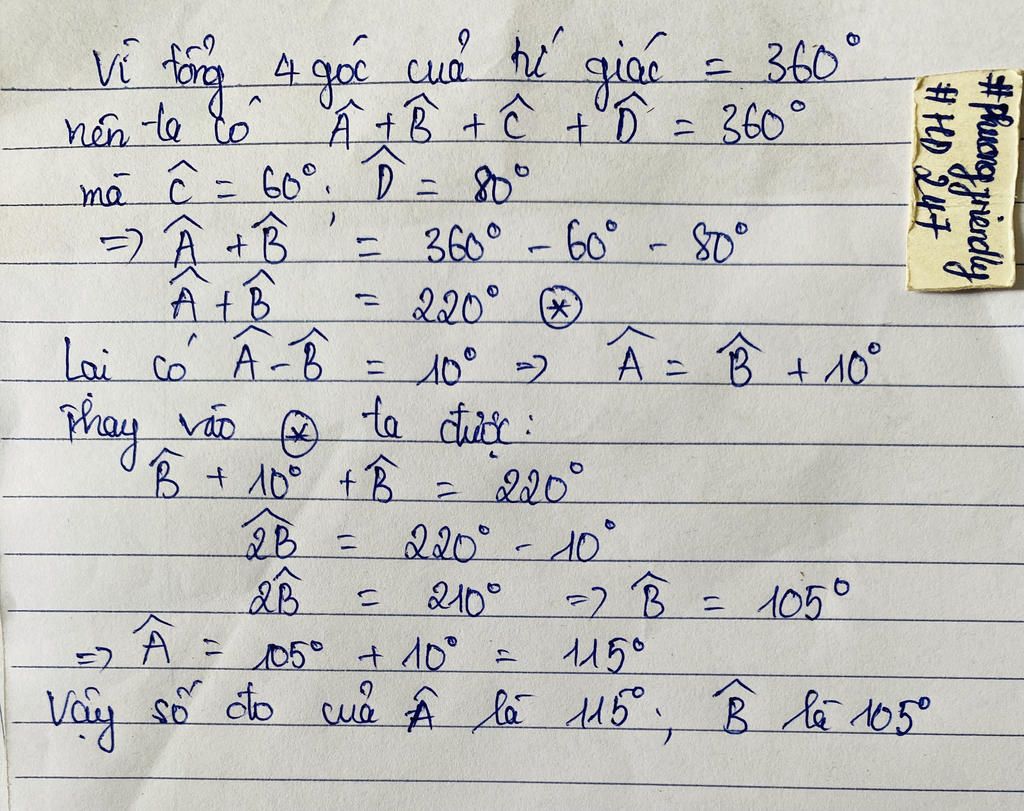 Vì tổng 4 góc của tứ giác = 360°
nên ta có Â + B̂ + Ĉ + D̂ = 360°
mà Ĉ = 60°; D̂ = 80°
=> Â + B̂ = 360° - 60° - 80°
Â + B̂ = 220° ⊛
Lại có Â - B̂ = 10° => Â = B̂ + 10°
Thay vào ⊛ ta được:
B̂ + 10° + B̂ = 220°
2B̂ = 220° - 10°
2B̂ = 210° => B̂ = 105°
=> Â = 105° + 10° = 115°
Vậy số đo của Â là 115°; B̂ là 105°
#phuong_friendly
#HD247